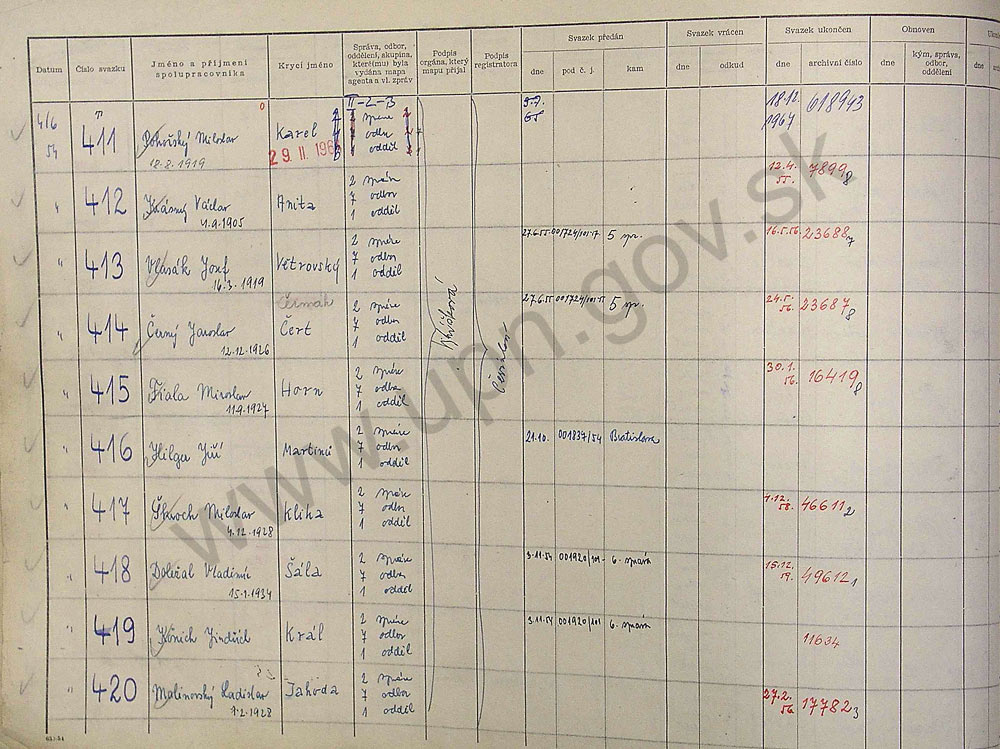 Datum
Číslo svazku
Jméno a přijmení spolupracovníka
Krycí jméno
Správa, odbor, oddělení, skupina, které(mu) byla vydána mapa agenta a vl. zpráv
Podpis orgána, který mapu přijal
Podpis registratora
Svazek předán
dne
pod č. j.
kam
Svazek vrácen
dne
odkud
Svazek ukončen
dne
archivní číslo
Obnoven
dne
kým, správa, odbor, oddělení
dne
II-2-B
4/6 54
411
Miloslav
18.8.1919
Karel
29. II. 196
odbor
oddíl
18.12. 1967
618943
412
Krásný Václav
4.9.1905
Anita
2 správa
7 odbor
1 oddíl
12.4. 55.
7899
8
413
Vlasák Josef
16.3.1919
Větrovský
2 správa
7 odbor
1 oddíl
27.6.55
5 spr.
16.5.56.
23688
414
Černý Jaroslav
12.12.1926
Čermák
Čert
2 správa
7 odbor
1 oddíl
27.6.55
5 spr.
24.5. 56.
23687
8
415
Fiala Miroslav
11.9.1927
Horn
2 správa
7 odbor
1 oddíl
30.1. 56.
16419
8
416
Hilga Jiří
Martinů
2 správa
7 odbor
1 oddíl
21.10.
001837/54
Bratislava
417
Miloslav
4.12.1928
Kliha
2 správa
7 odbor
1 oddíl
58.
46611
2
418
Doležal Vladimír
15.1.1934
Šála
2 správa
7 odbor
1 oddíl
3.11.54
001920/101
6. správa
15.12. 59.
49612
1
419
Jindřich
Král
2 správa
7 odbor
1 oddíl
3.11.54
001920/101
6. správa
11634
420
Malinovský Ladislav
1.2.1928
Jahoda
2 správa
7 odbor
1 oddíl
27.2. 56.
17782
3
www.upn.gov.sk